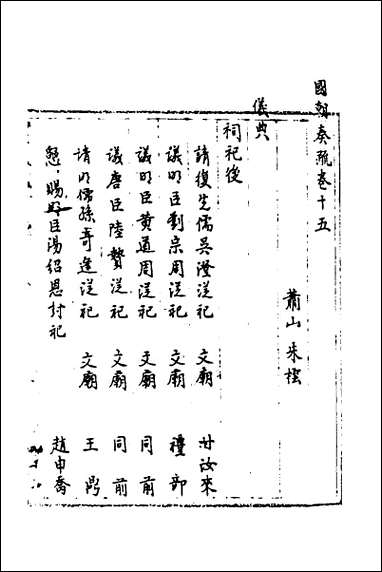 國朝奏疏卷十五
蕭山朱橒
儀典
祠祀後
請復先儒吳澄從祀 文廟 甘汝來
議明臣劉宗周從祀 文廟 禮部
議明臣黃道周從祀 文廟 同前
議唐臣陸贄從祀 文廟 同前
請明儒孫奇逢從祀 文廟 王鼎
懇賜明臣湯紹恩封祀 趙申喬